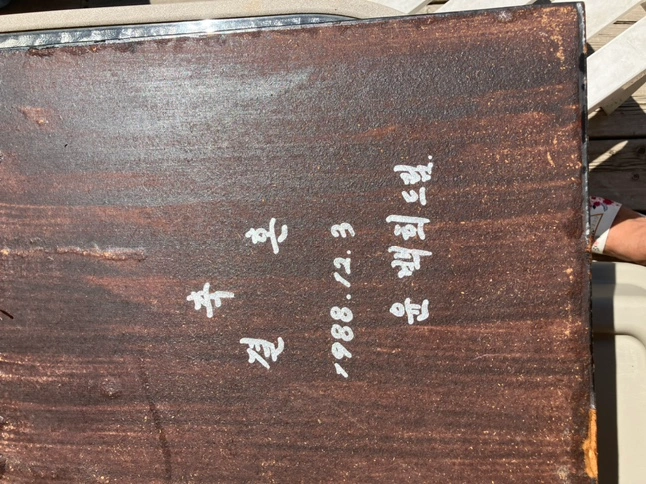 축
결 혼
1988.12.3
윤백희 드림.